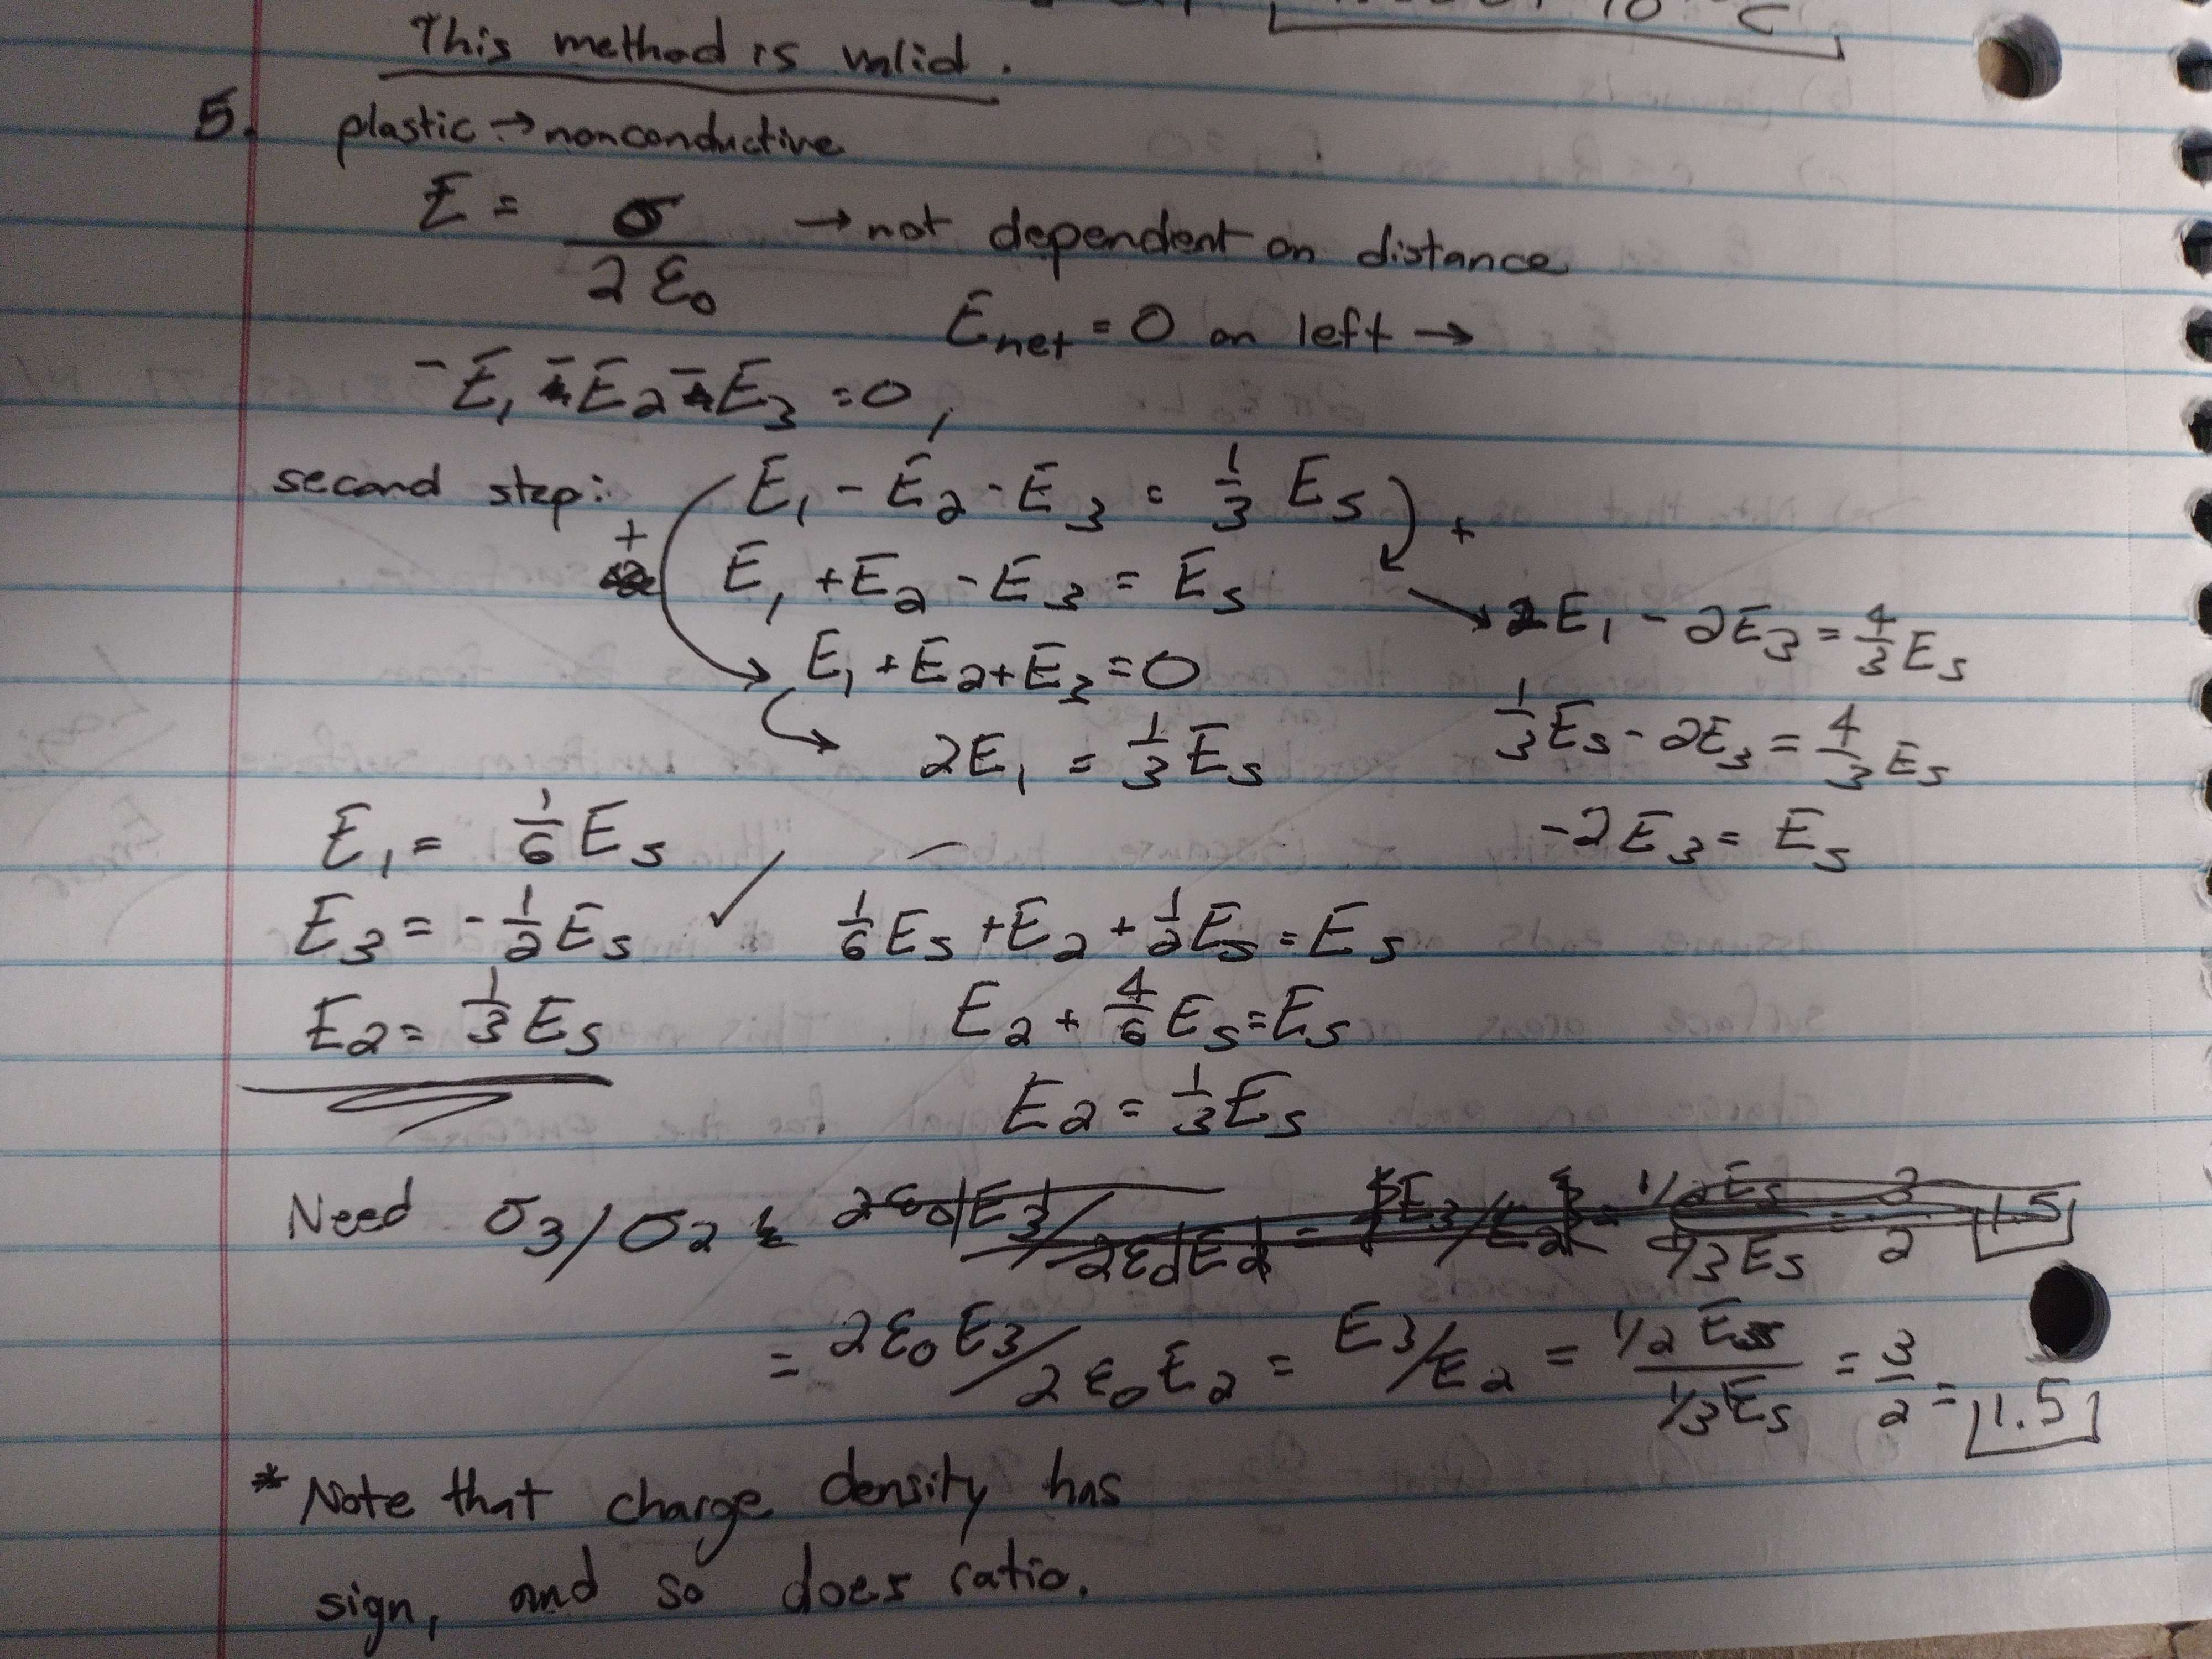 10 C
This method is valid.
5. plastic → nonconductive
E = σ / 2ε₀ → not dependent on distance
E_net = 0 on left →
-E₁ - E₂ - E₃ = 0,
second step: E₁ - E₂ - E₃ = 1/3 E_s +
+ E₁ + E₂ - E₃ = E_s
→ 2E₁ - 2E₃ = 4/3 E_s
E₁ + E₂ + E₃ = 0
1/3 E_s - 2E₃ = 4/3 E_s
2E₁ = 1/3 E_s
-2E₃ = E_s
E₁ = 1/6 E_s
E₃ = -1/2 E_s ✓ 1/6 E_s + E₂ + 1/2 E_s = E_s
E₂ = 1/3 E_s E₂ + 4/6 E_s = E_s
E₂ = 1/3 E_s
Need σ₃/σ₂ 2ε₀|E₃|/2ε₀|E₂| = |E₃/E₂| = 1/2 E_s / 1/3 E_s = 3/2 1.5
= 2ε₀E₃/2ε₀E₂ = E₃/E₂ = 1/2 E_s / 1/3 E_s = 3/2 = 1.5
* Note that charge density has
sign, and so does ratio.